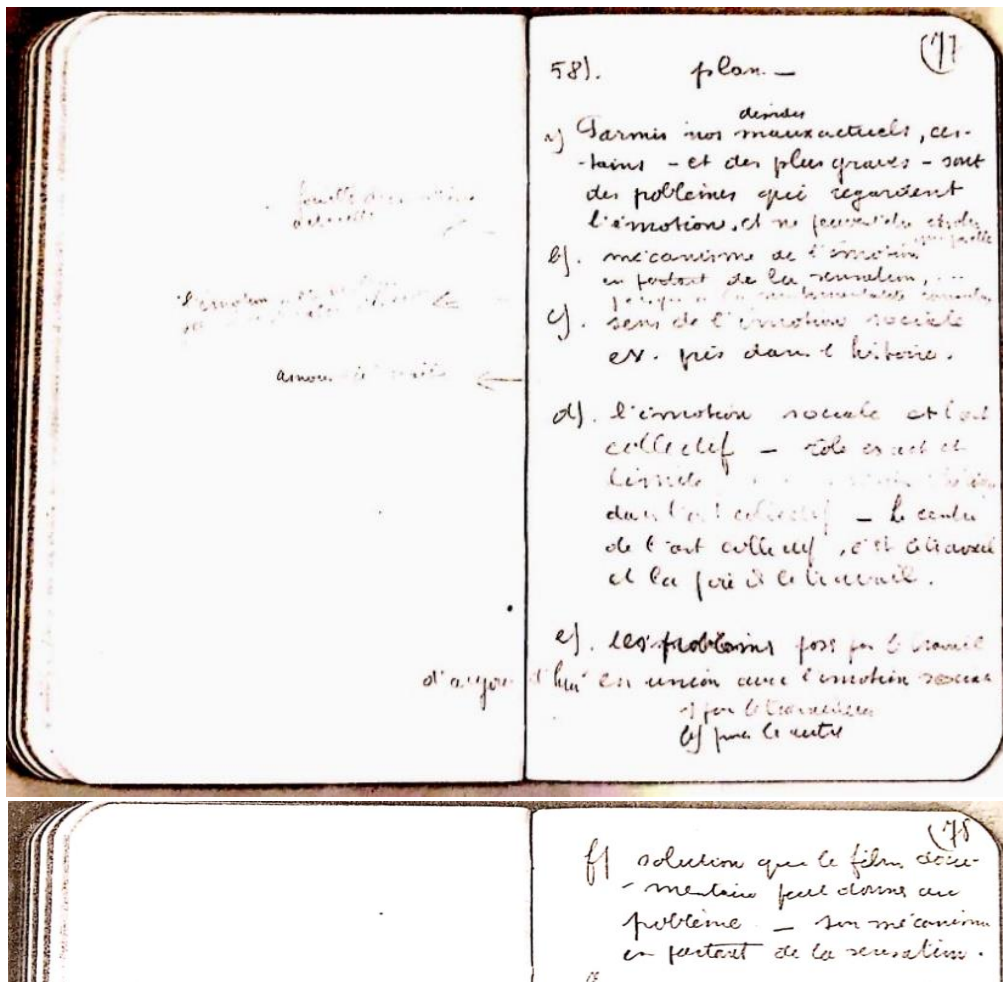 (77
58). plan —
a) Parmis nos maux actuels, cer-
-tains – et des plus graves – sont
des poblèmes qui regardent
l'émotion, et ne peuvent
b). mécanisme de l'émotion
en partant de la sensation, ...
c). sens de l'émotion sociale
ex. pris dans l'histoire.
amour
d). l'émotion sociale et l'art
collectif — rôle exact et
limite
dans l'art collectif — le centre
de l'art collectif, c'est le travail
et la joie le travail.
e). les problèmes posés par le travail
d'aujourd'hui en union avec l'émotion sociale
a) pour le travailleur
b) pour le autre
(78
f) solution que le film docu-
-mentaire peut donner au
problème — son mécanisme
en partant de la sensation.